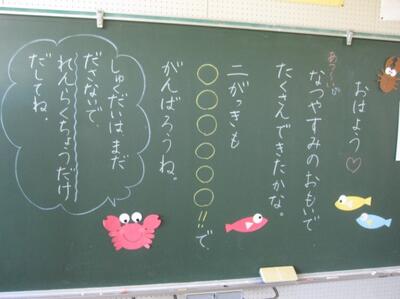 おはよう♡
あつ〜いが
なつやすみのおもいで
たくさんできたかな。
二がっきも
○○○○○○!!で、
がんばろうね。
しゅくだいは まだ
ださないで、
れんらくちょうだけ
だしてね。